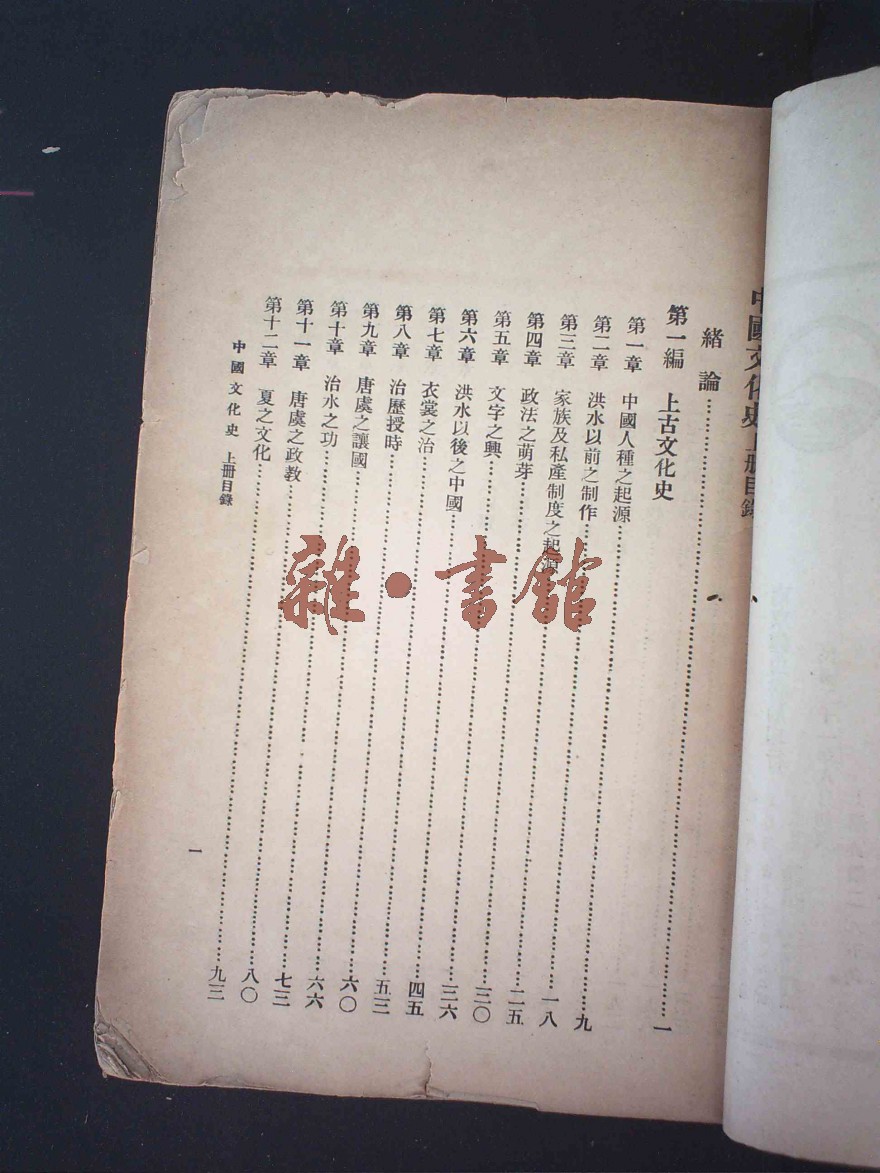 中國文化史上册目錄
緒論……一
第一編 上古文化史
第一章 中國人種之起源……九
第二章 洪水以前之制作……一八
第三章 家族及私產制度之起源……二五
第四章 政法之萌芽……三〇
第五章 文字之興……三六
第六章 洪水以後之中國……四五
第七章 衣裳之治……五三
第八章 治歷授時……六〇
第九章 唐虞之讓國……六六
第十章 治水之功……七三
第十一章 唐虞之政教……八〇
第十二章 夏之文化……九三
中國文化史 上册目錄
一
雜·書館